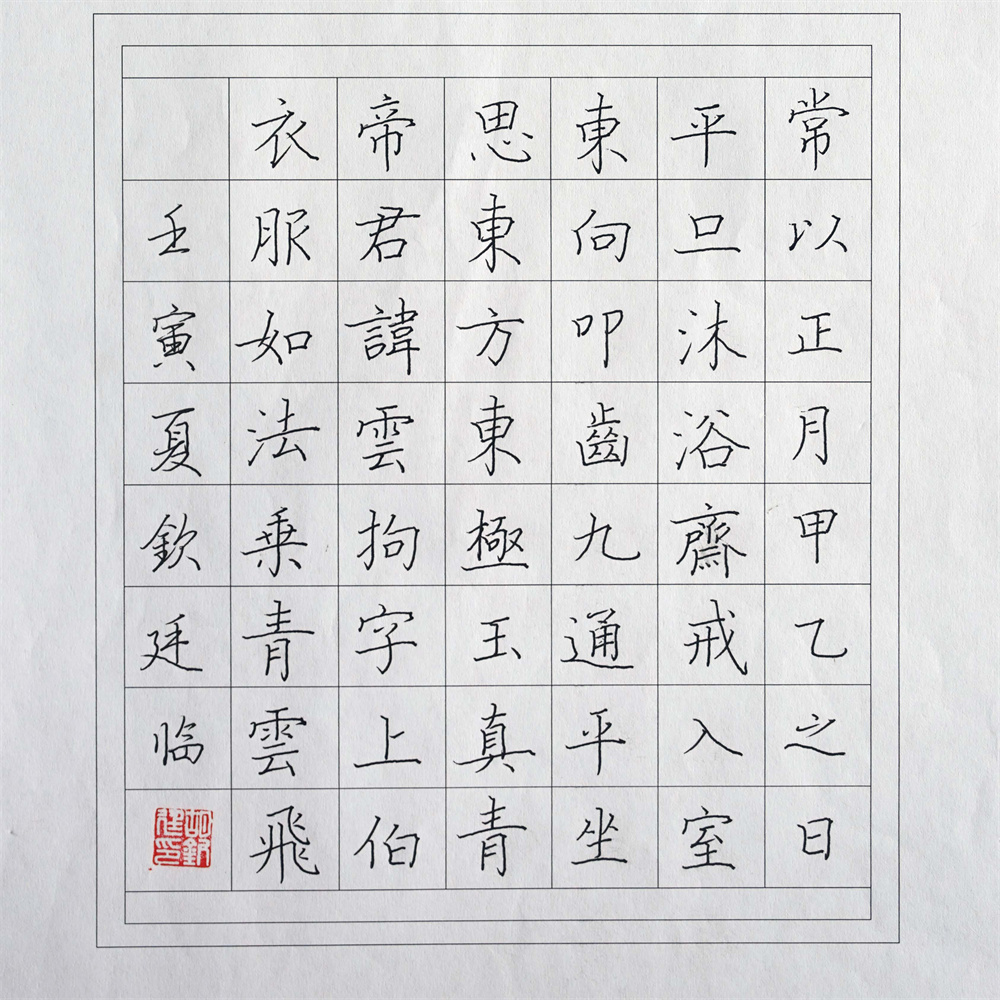 常以正月甲乙之日
平旦沐浴齋戒入室
東向叩齒九通平坐
思東方東極玉真青
帝君諱雲拘字上伯
衣服如法乗青雲飛
壬寅夏欽廷临